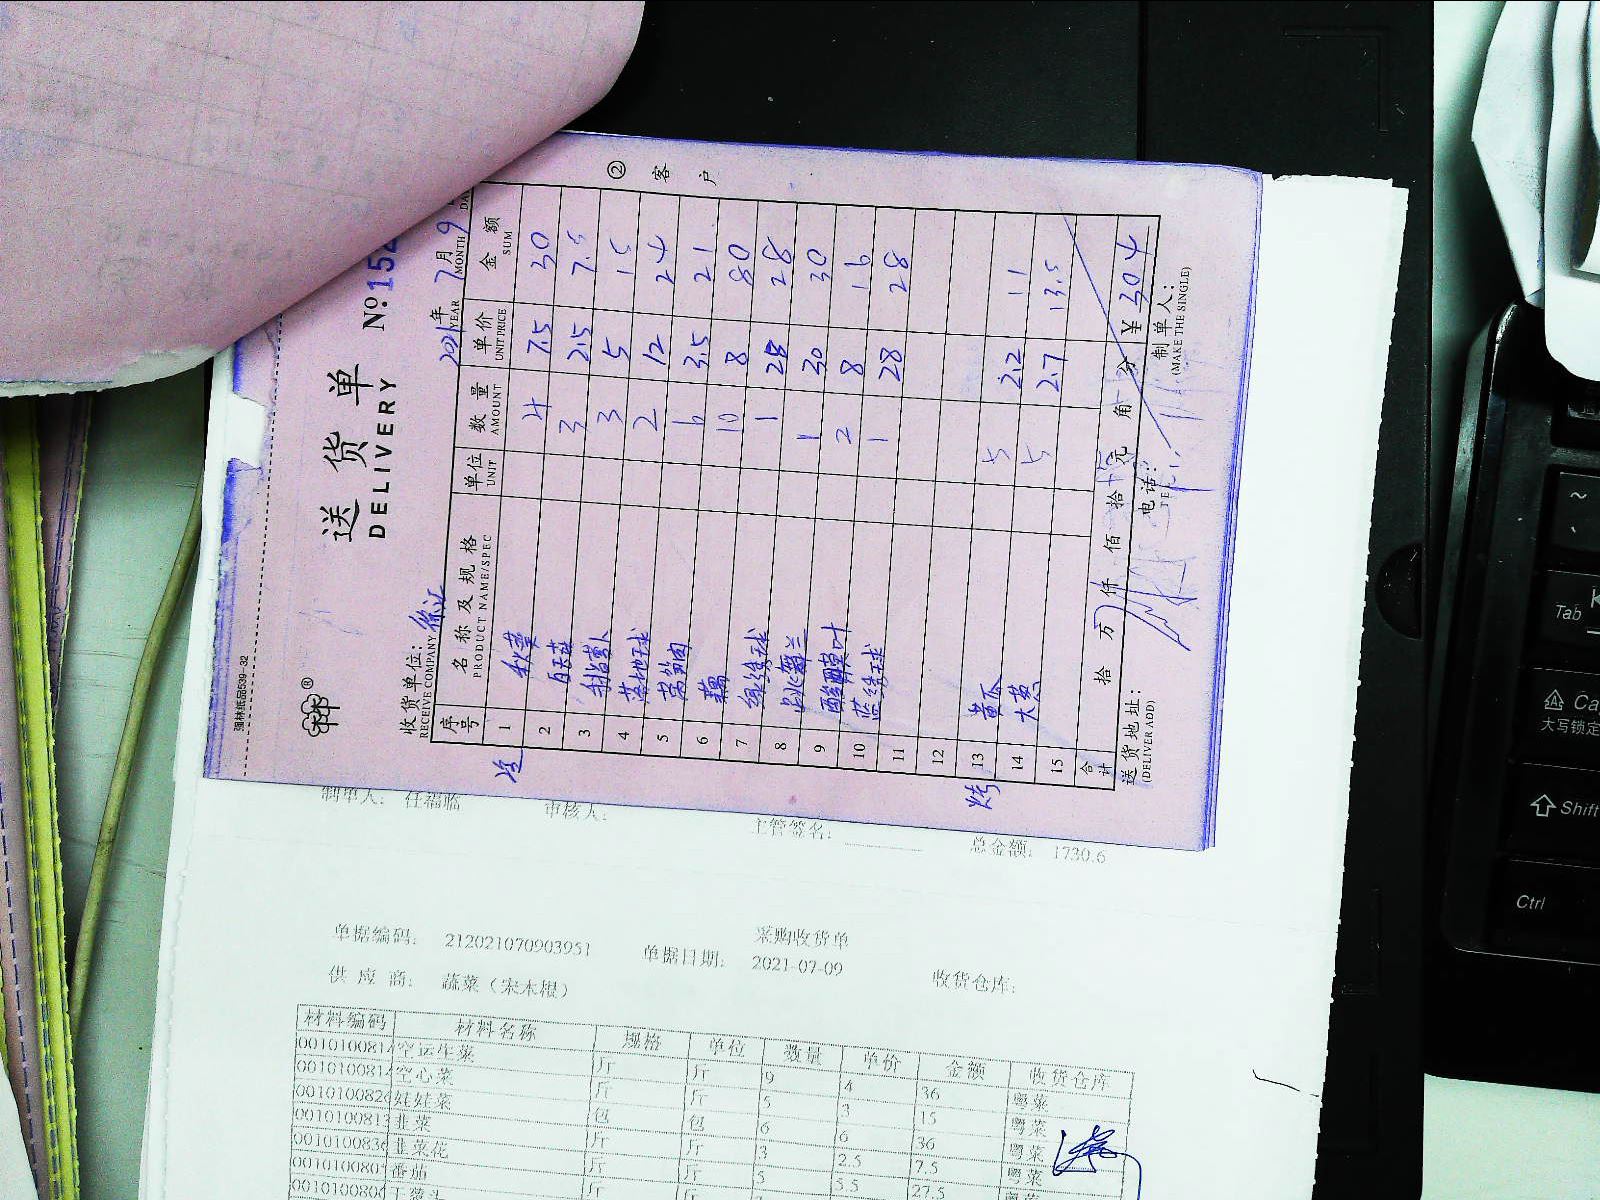 强林纸品539-32
送货单
DELIVERY
№:
收货单位:
RECEIVE COMPANY
2021年 7月 9
YEAR MONTH
② 客户
序号 名称及规格 单位 数量 单价 金额
PRODUCT NAME/SPEC UNIT AMOUNT UNIT PRICE SUM
冷 1 秋葵 4 7.5 30
2 3 2.5 7.5
3 3 5 15
4 落地球 2 12 24
5 6 3.5 21
6 藕 10 8 80
7 绿绣球 1 28 28
8 1 30 30
9 酸膜叶 2 8 16
10 蓝绣球 1 28 28
11
12
烤 13 黄瓜 5 2.2 11
14 大葱 5 2.7 13.5
15
合计 拾 万 仟 佰 拾 元 角 分 ¥ 304
送货地址:
(DELIVER ADD)
电话:
制单人:
(MAKE THE SINGLE)
制单人: 任福临 审核人: 主管签名: 总金额: 1730.6
采购收货单
单据编码: 212021070903951 单据日期: 2021-07-09 收货仓库:
供应商: 蔬菜(宋木根)
材料编码 材料名称 规格 单位 数量 单价 金额 收货仓库
0010100814 空运生菜 斤 斤 9 4 36 粤菜
0010100814 空心菜 斤 斤 5 3 15 粤菜
0010100826 娃娃菜 包 包 6 6 36 粤菜
0010100813 韭菜 斤 斤 3 2.5 7.5 粤菜
0010100836 韭菜花 斤 斤 5 5.5 27.5
番茄
Tab
Ctrl
Shift
大写锁定